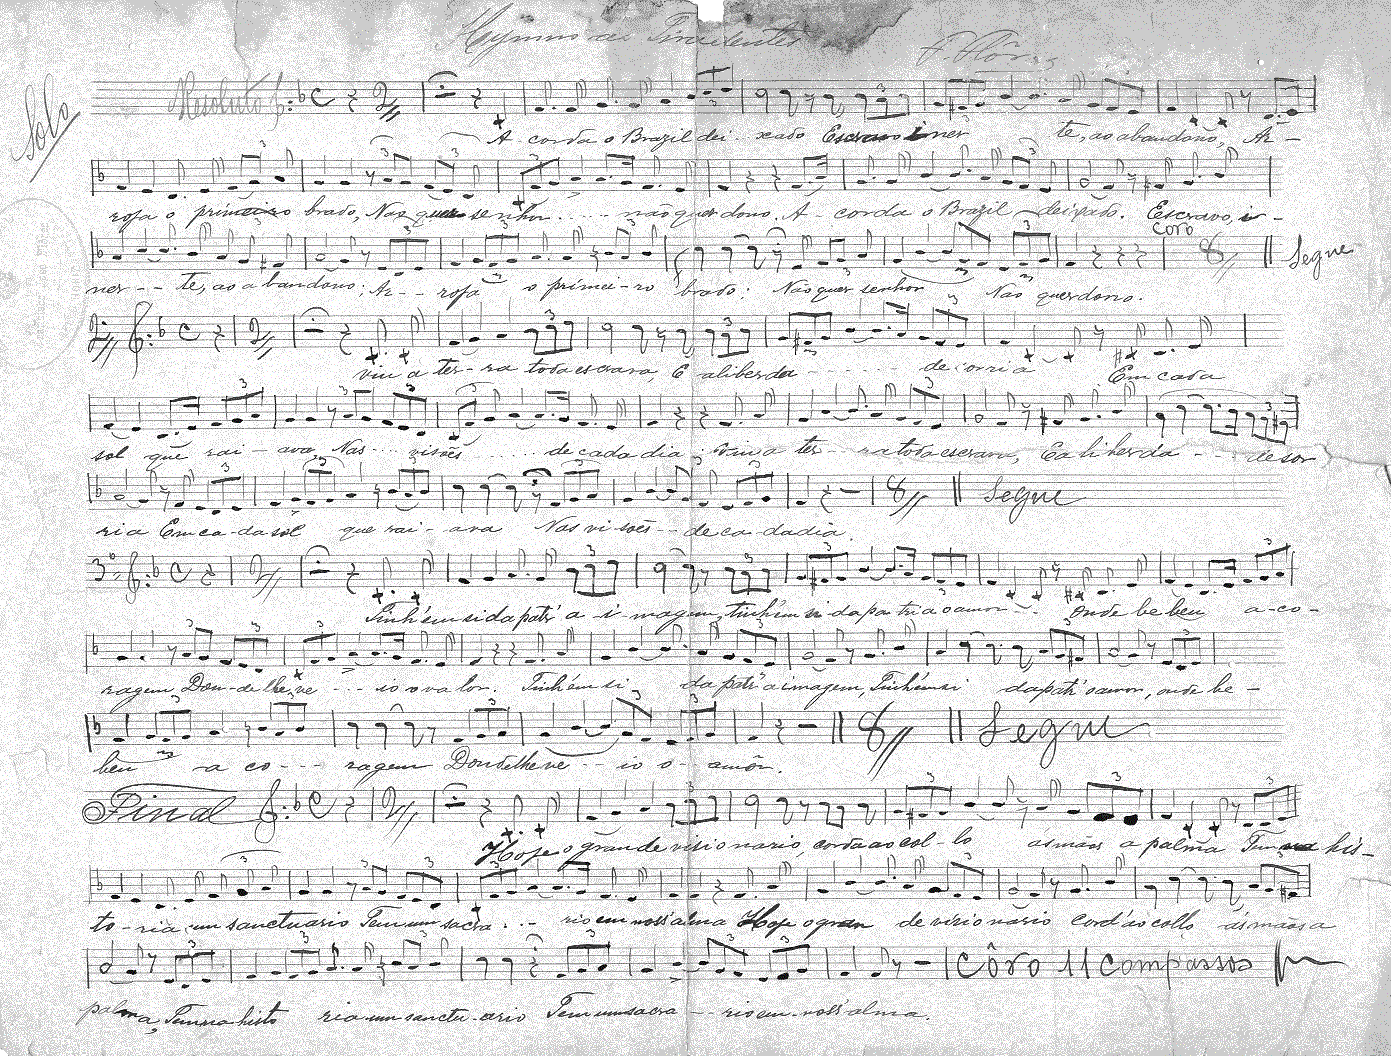 Hymno a Tiradentes
Solo
Resoluto
A corda o Brazil dei-xado Escravo iner te, ao abandono, Ar-
roja o primeiro brado, Nas quer senhor .... não quer dono. A corda o Brazil deixado. Escravo, i-
Coro
8
Segue
ner -- te, ao abandono; Ar-- roja o primei-ro brado: Nas quer senhor Nas quer dono.
2ª
Viu a ter-ra toda escrava, E a liberda ...... de sorria Em cada
sol que rai-ava, Nas ... visões ...... de cada dia Viu a ter-ra toda escrava, E a liberda --- de sor
8
Segue
ria Em ca-da sol que rai-ava Nas vi-sões -- de ca-da dia.
3ª
Tinh'em si da patr'a-i-magem, tinh'em si-da patria o amor -- Onde bebeu a-co-
ragem, Don-de lhe ve --- io o valor. Tinh'em si da patr'a imagem, Tinh'em si da patr'o amor, onde be-
8
Segue
beu -a co--- ragem Donde lhe ve -- io o -- amôr.
Final
Hoje o grande visionario, corda ao col-lo ás mãos a palma Tem na his-
to-ria um sanctuario Tem um sacra ... rio em noss'alma Hoje o gran de visionario Cord'ao collo ás mãos a
Côro 11 compassos
palma, Tem na histo ria um sanctu-ario Tem um sacra -- rio em noss'alma.